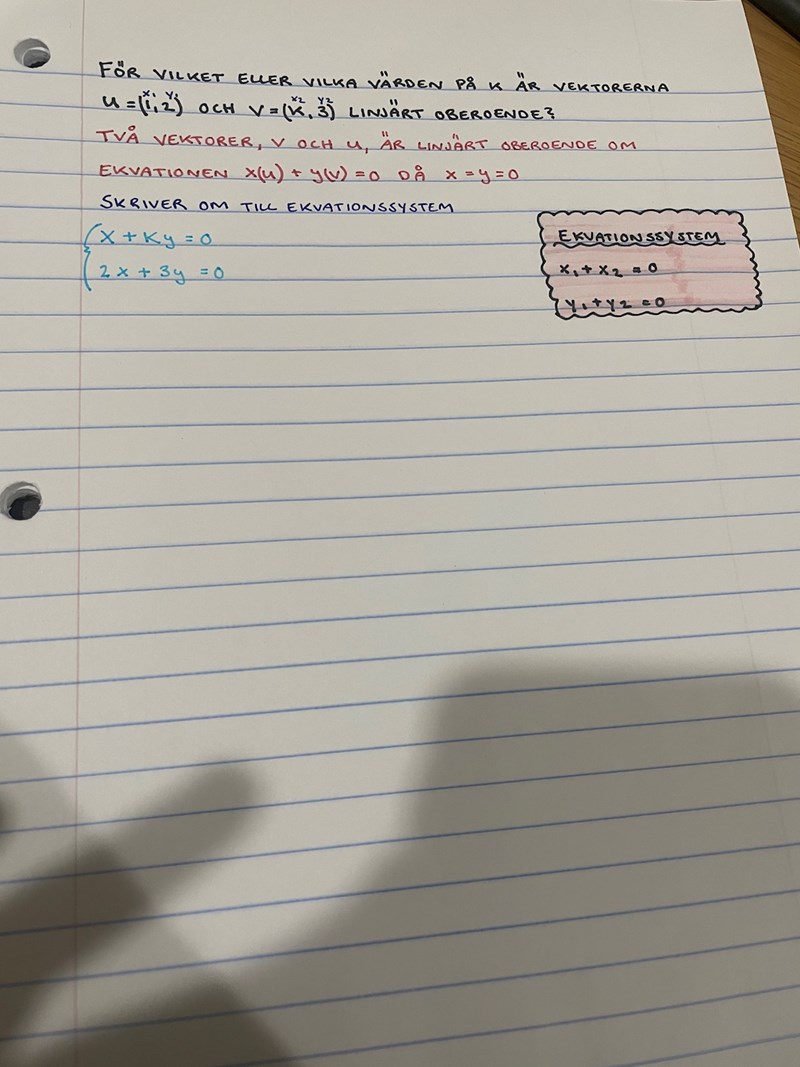 FÖR VILKET ELLER VILKA VÄRDEN PÅ K ÄR VEKTORERNA
x₁ y₁ x₂ y₂
U = (1,2) OCH V = (K,3) LINJÄRT OBEROENDE?
TVÅ VEKTORER, V OCH U, ÄR LINJÄRT OBEROENDE OM
EKVATIONEN x(u) + y(v) = 0 DÅ x = y = 0
SKRIVER OM TILL EKVATIONSSYSTEM
x + Ky = 0
2x + 3y = 0
EKVATIONSSYSTEM
x₁ + x₂ = 0
y₁ + y₂ = 0